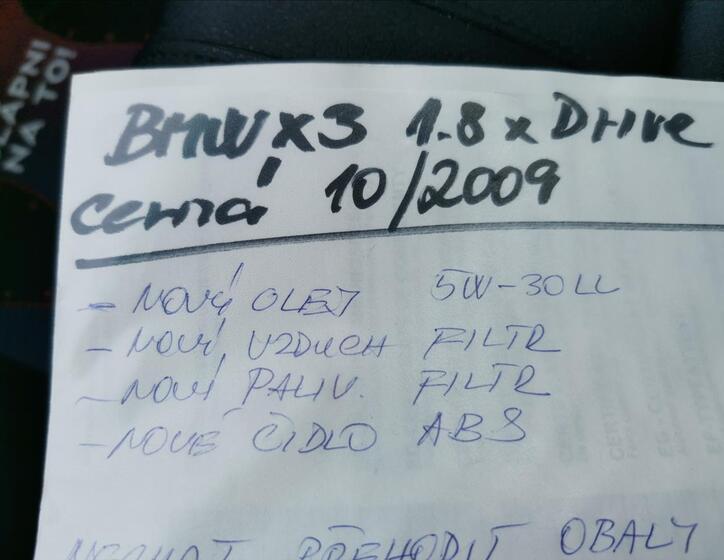 LÁPNI
NA TO!
BMW X3 1.8 x Drive
černá 10/2009
- NOVÝ OLEJ 5W-30LL
- NOVÝ VZDUCH FILTR
- NOVÝ PALIV. FILTR
- NOVÉ ČIDLO ABS
NECHAT PŘEHODIT OBALY